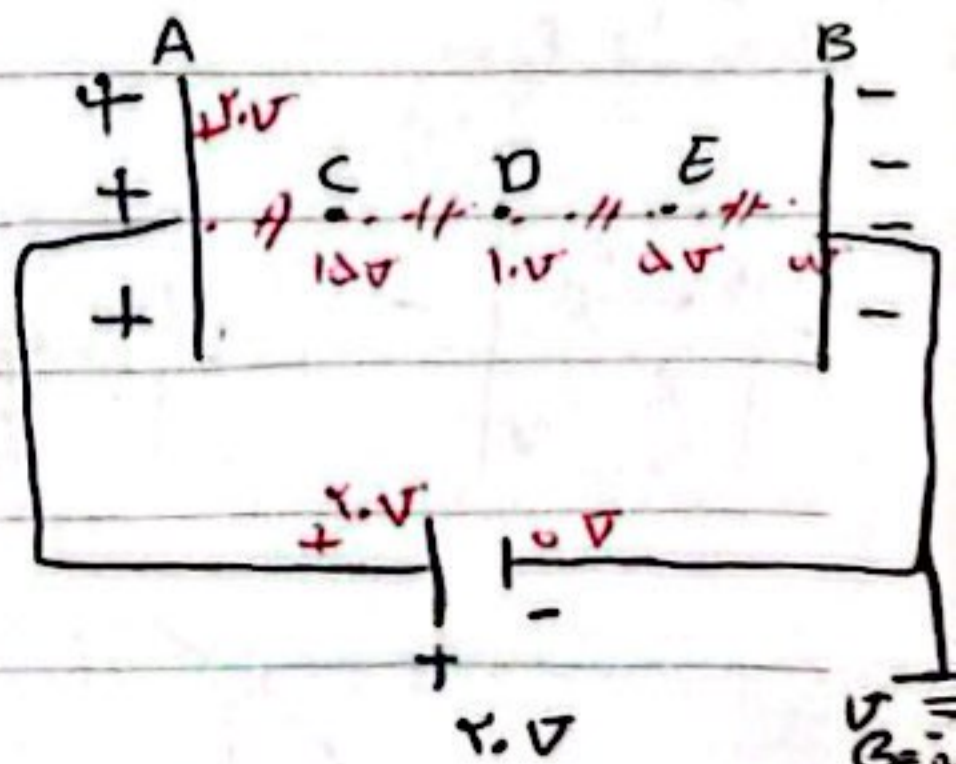 A B
+ ۲۰v -
+ C D E -
۱۵v ۱۰v ۵v
+ -
۲۰v ۰ v
+ -
+
۲۰v
v
B=۰